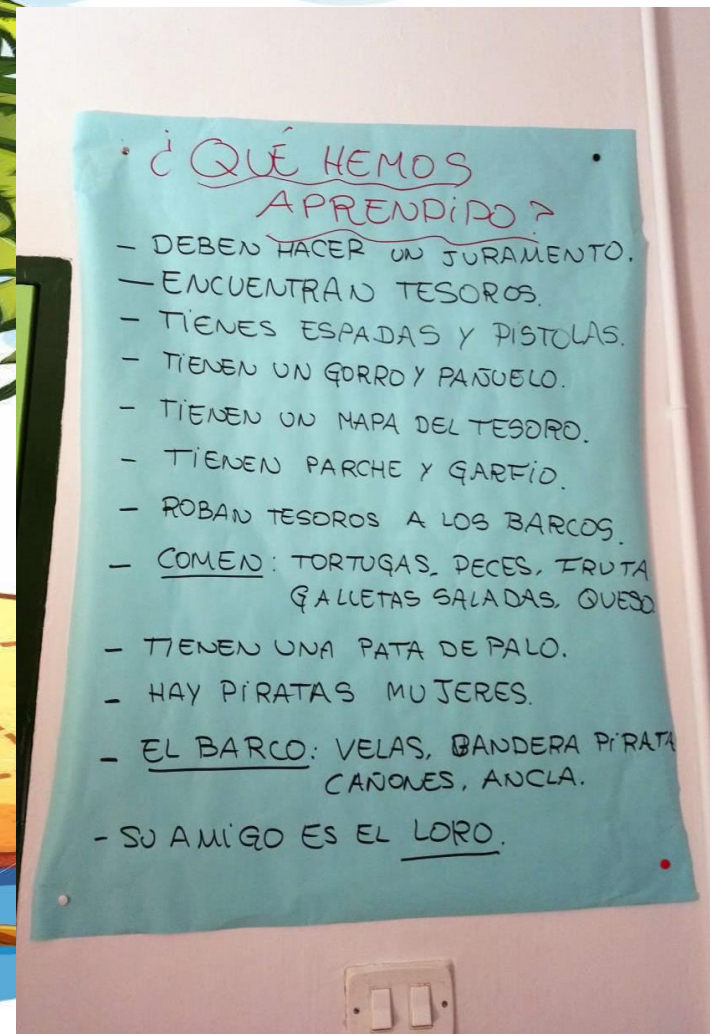 ¿QUÉ HEMOS
APRENDIDO?
- DEBEN HACER UN JURAMENTO.
- ENCUENTRAN TESOROS.
- TIENES ESPADAS Y PISTOLAS.
- TIENEN UN GORRO Y PAÑUELO.
- TIENEN UN MAPA DEL TESORO.
- TIENEN PARCHE Y GARFIO.
- ROBAN TESOROS A LOS BARCOS.
- COMEN: TORTUGAS, PECES, FRUTA
GALLETAS SALADAS, QUESO
- TIENEN UNA PATA DE PALO.
- HAY PIRATAS MUJERES.
- EL BARCO: VELAS, BANDERA PIRATA
CAÑONES, ANCLA.
- SU AMIGO ES EL LORO.